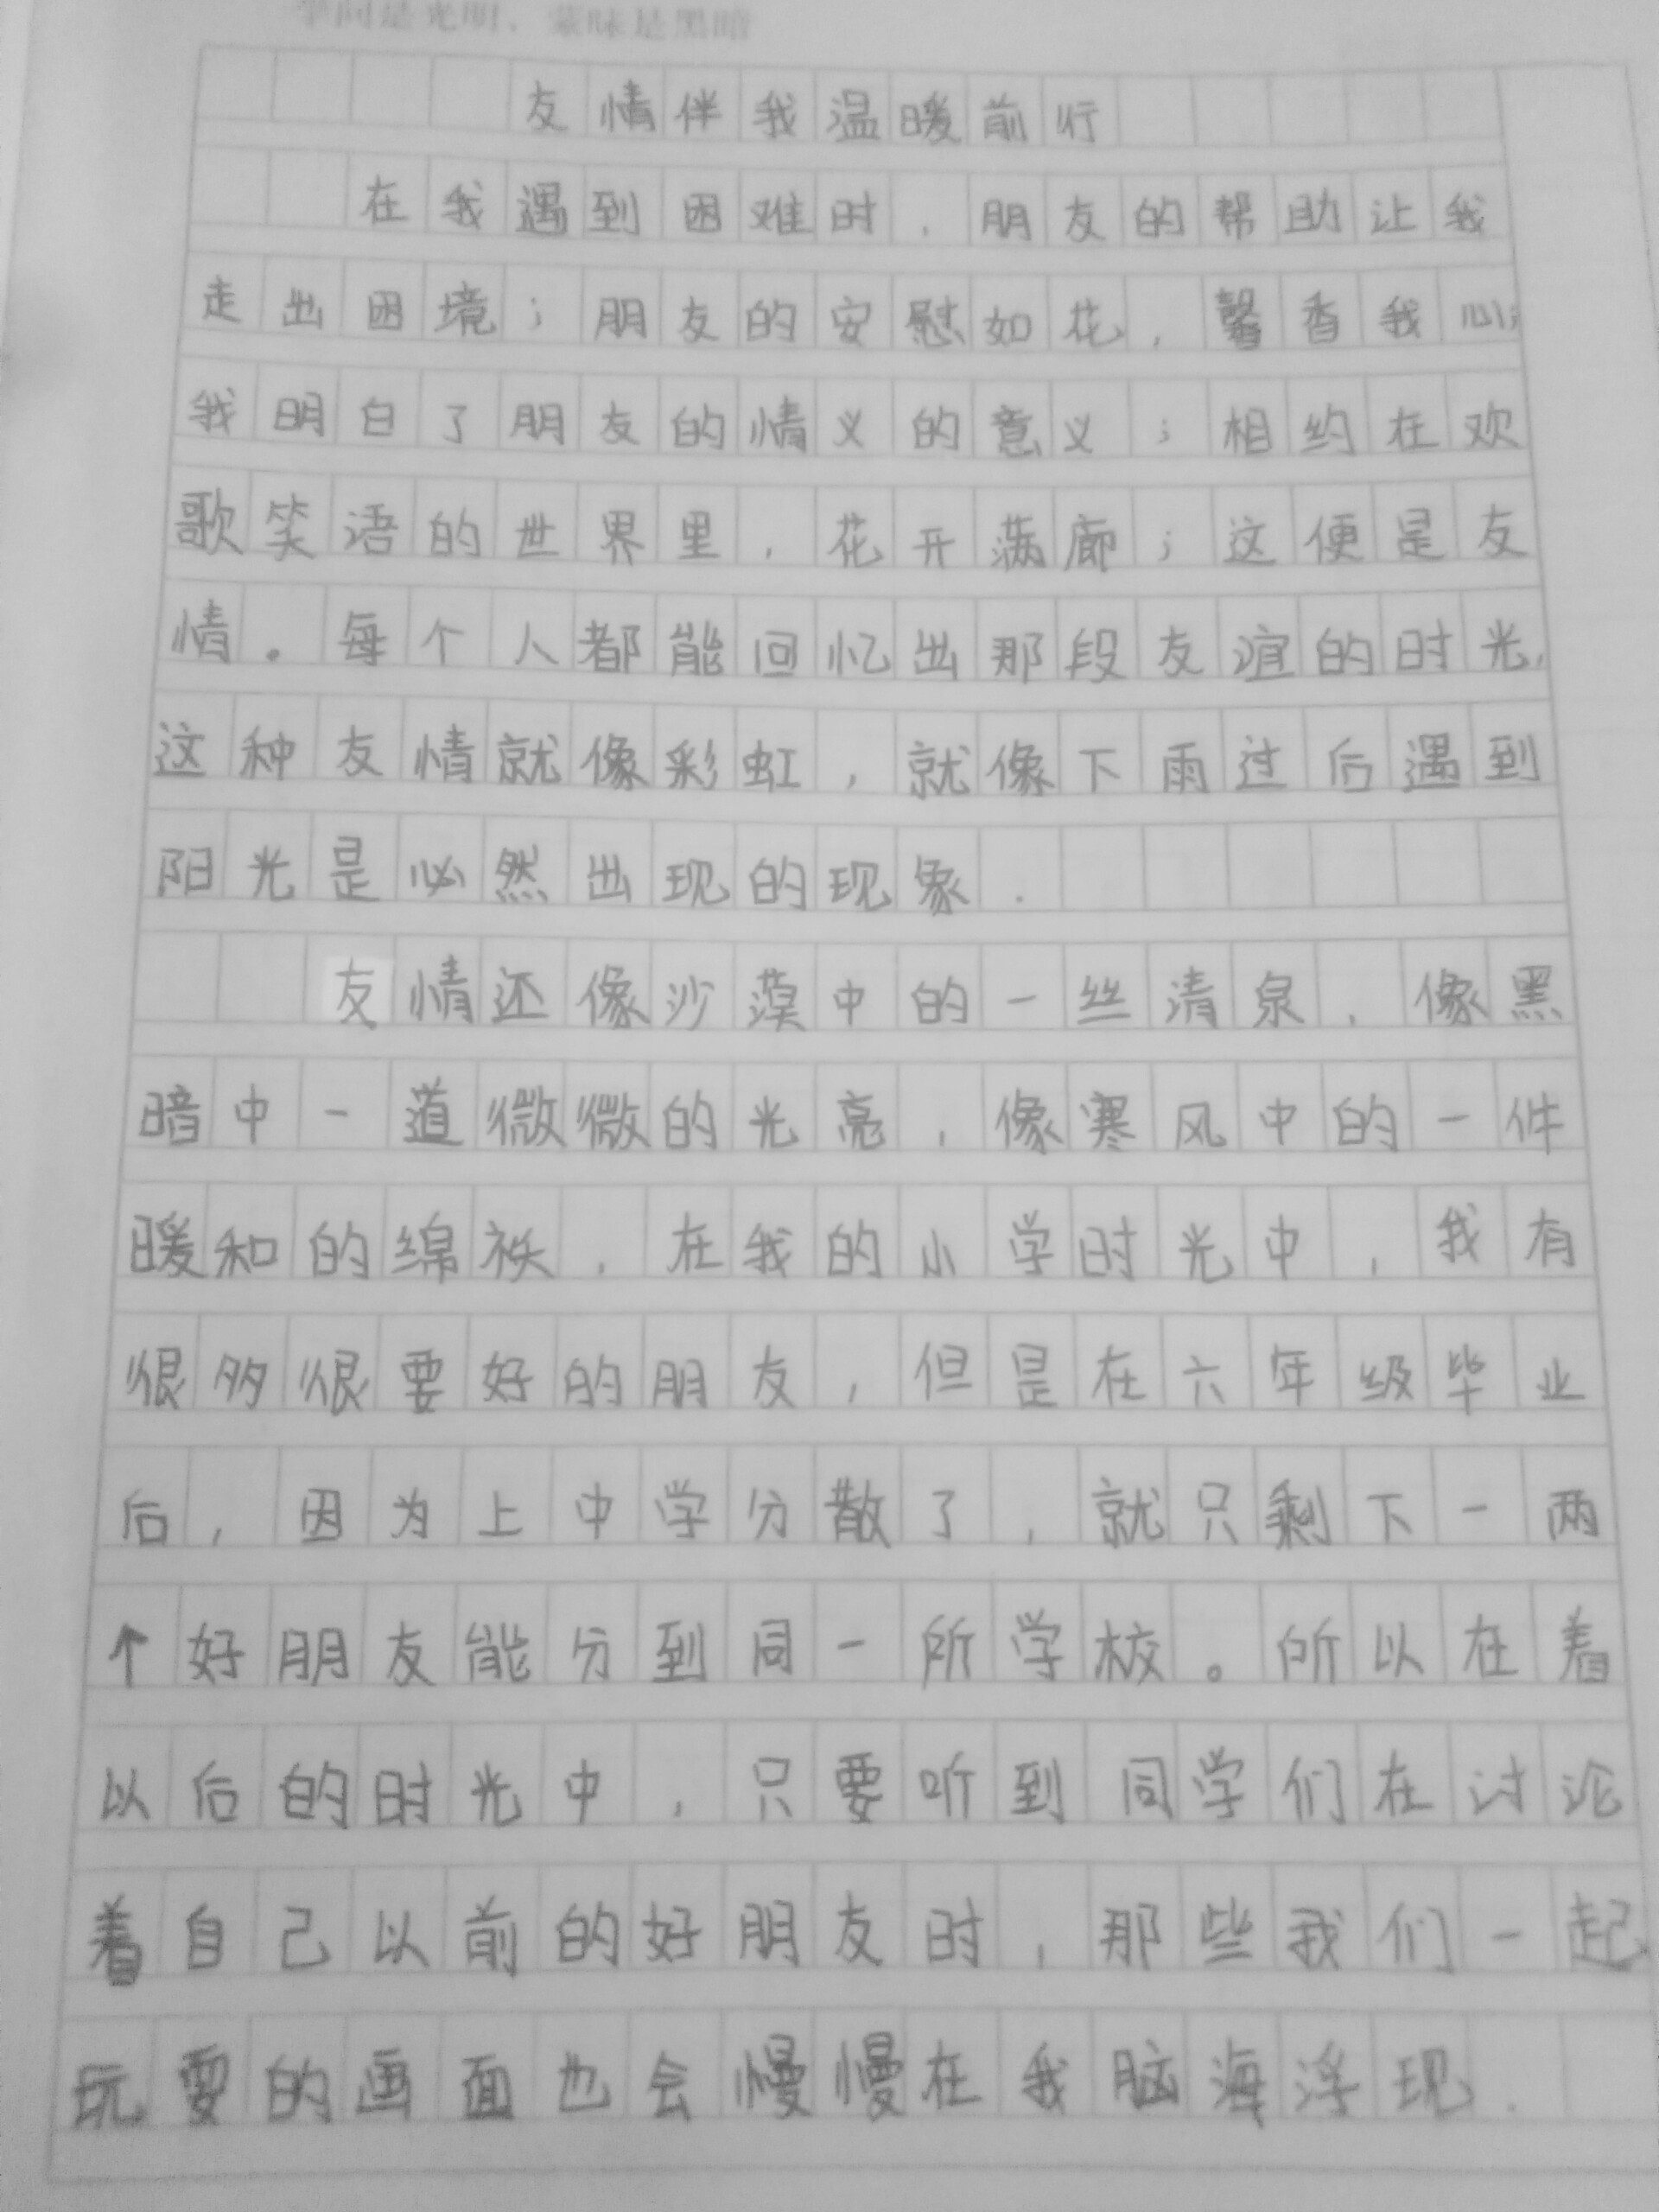 学问是光明，蒙昧是黑暗
友情伴我温暖前行
在我遇到困难时，朋友的帮助让我
走出困境；朋友的安慰如花，馨香我心；
我明白了朋友的情义的意义；相约在欢
歌笑语的世界里，花开满廊；这便是友
情。每个人都能回忆出那段友谊的时光，
这种友情就像彩虹，就像下雨过后遇到
阳光是必然出现的现象.
友情还像沙漠中的一丝清泉，像黑
暗中一道微微的光亮，像寒风中的一件
暖和的绵袄，在我的小学时光中，我有
很多很要好的朋友，但是在六年级毕业
后，因为上中学分散了，就只剩下一两
个好朋友能分到同一所学校。所以在着
以后的时光中，只要听到同学们在讨论
着自己以前的好朋友时，那些我们一起
玩耍的画面也会慢慢在我脑海浮现.